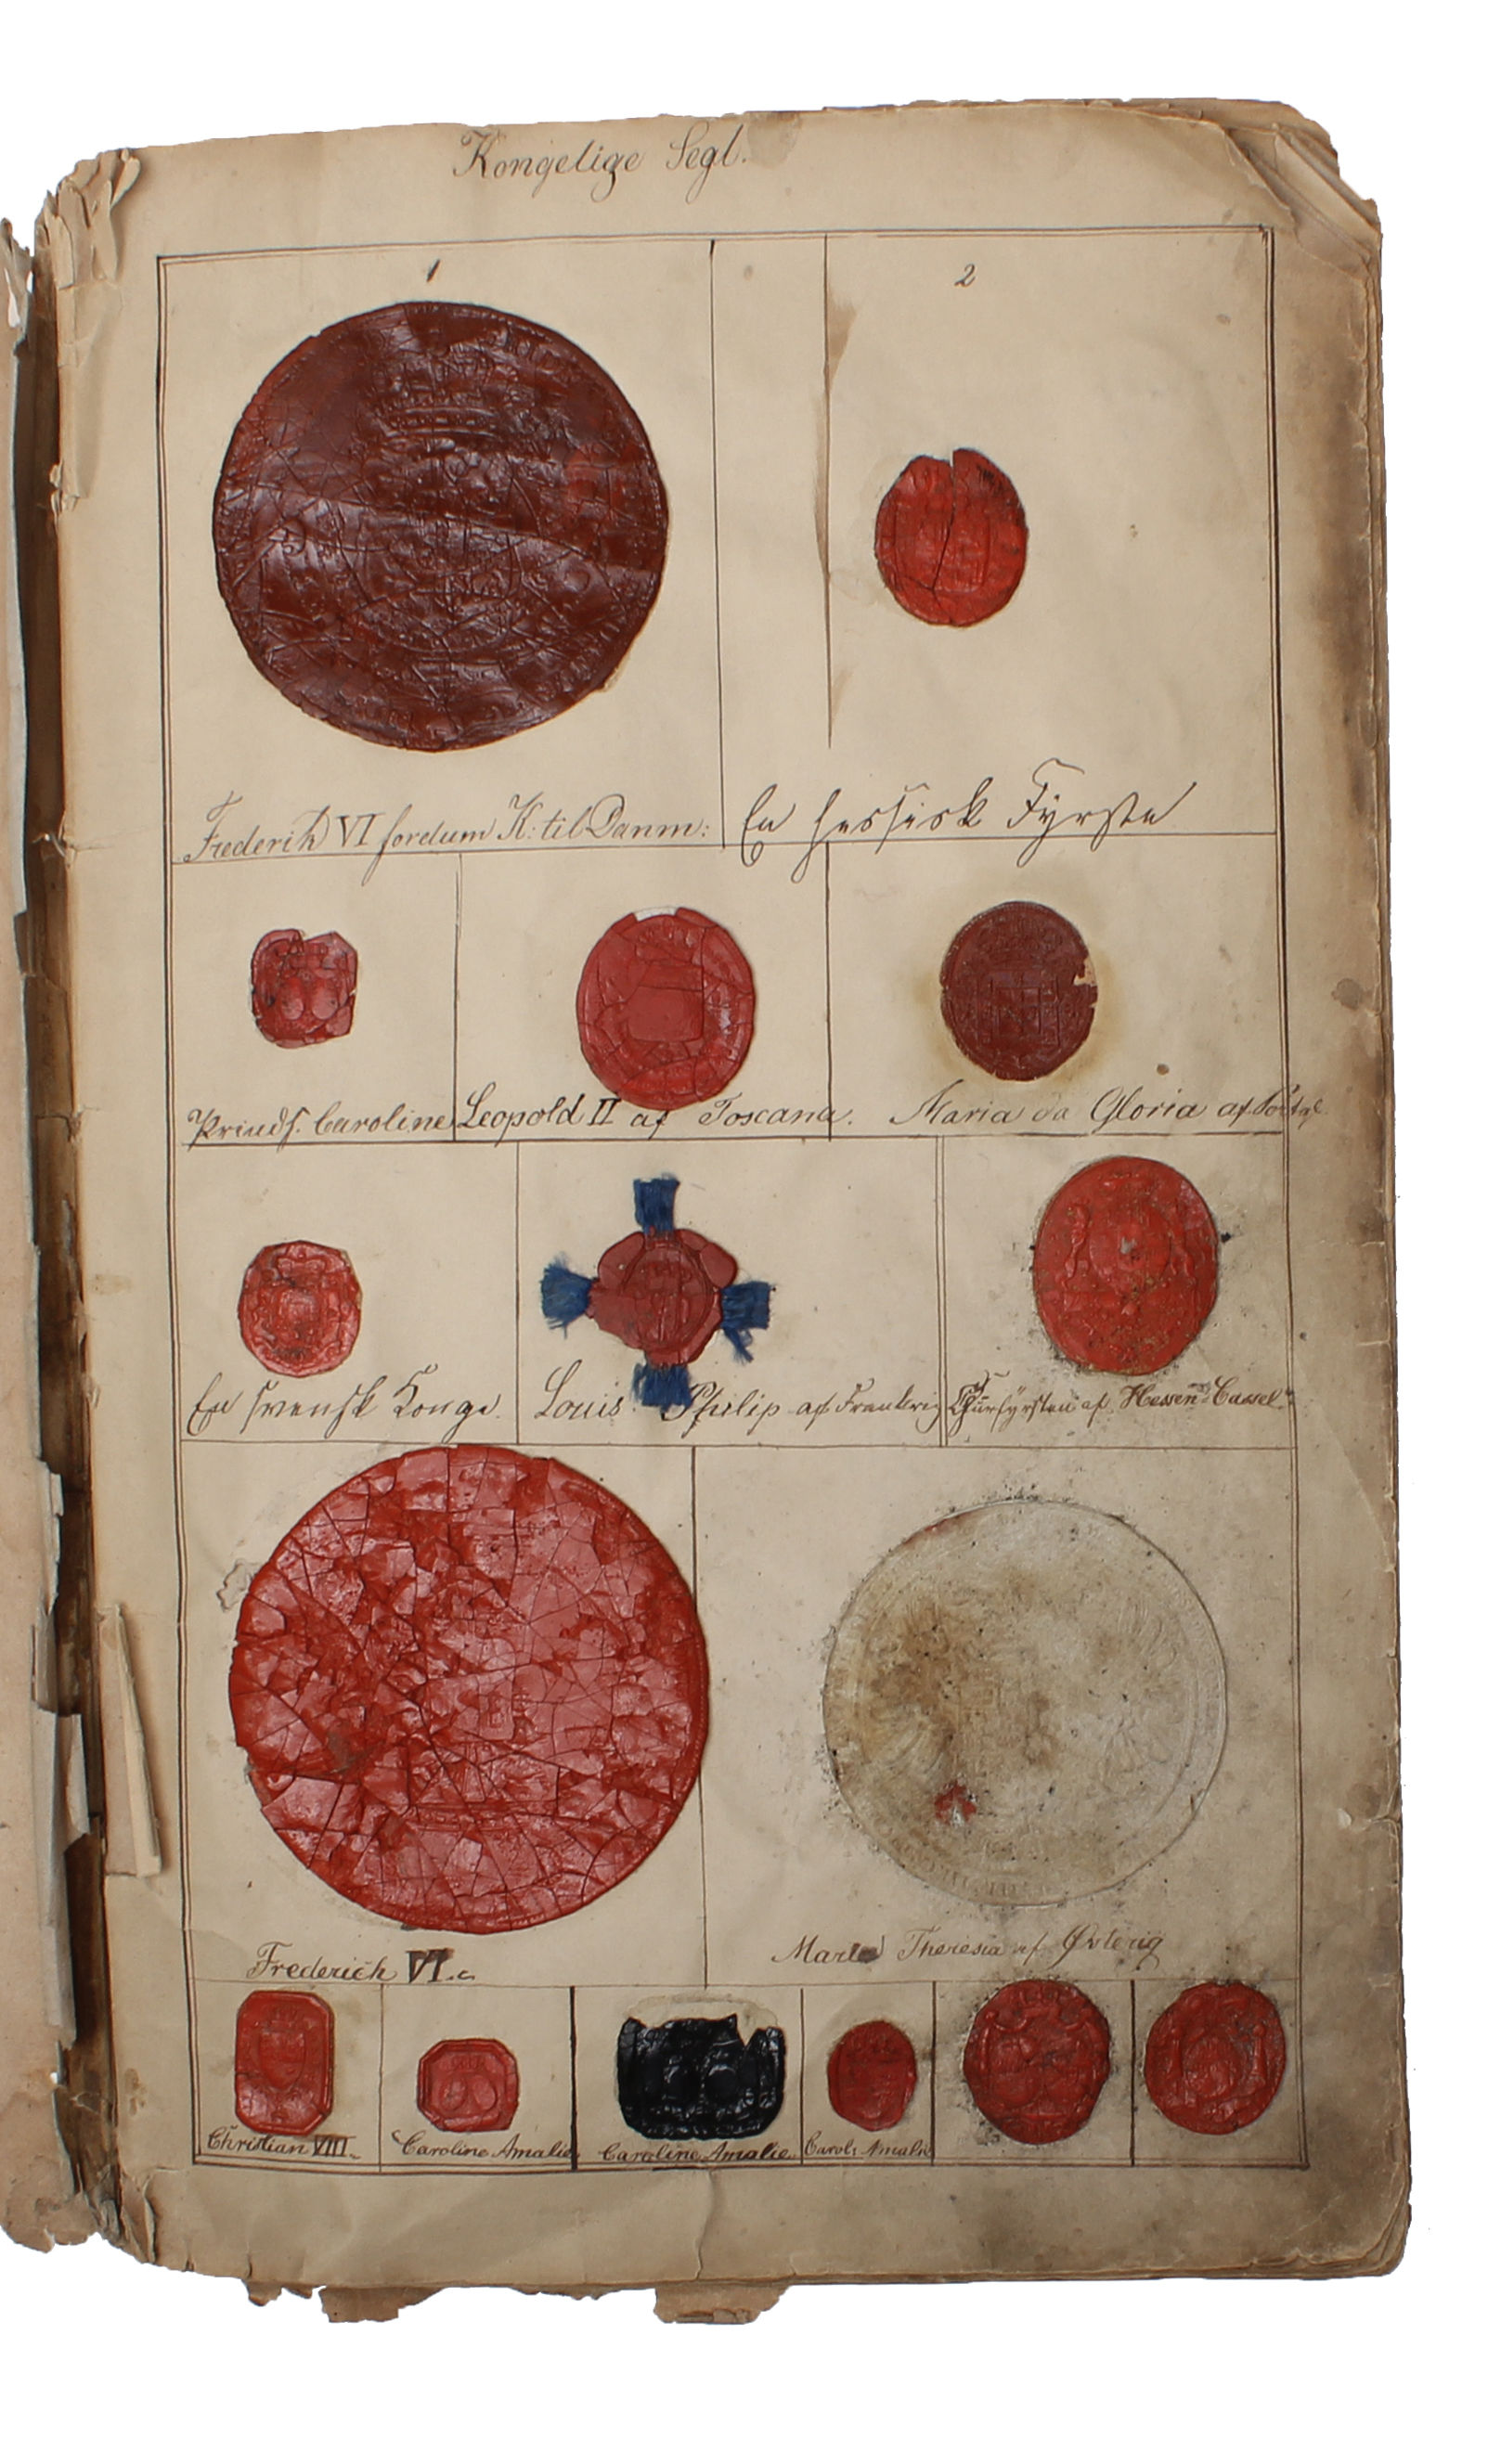 Kongelige Segl.
1
2
Frederik VI fordum K: til Danm:
En hessisk Fyrste
Prinds. Caroline
Leopold II af Toscana.
Maria da Gloria af Portgl.
En svensk Konge.
Louis Philip af Frankrig
Churfyrsten af Hessen-Cassel.
Frederich VI.
Maria Theresia af Østerig
Christian VIII.
Caroline Amalie
Caroline Amalie.
Carol: Amalie